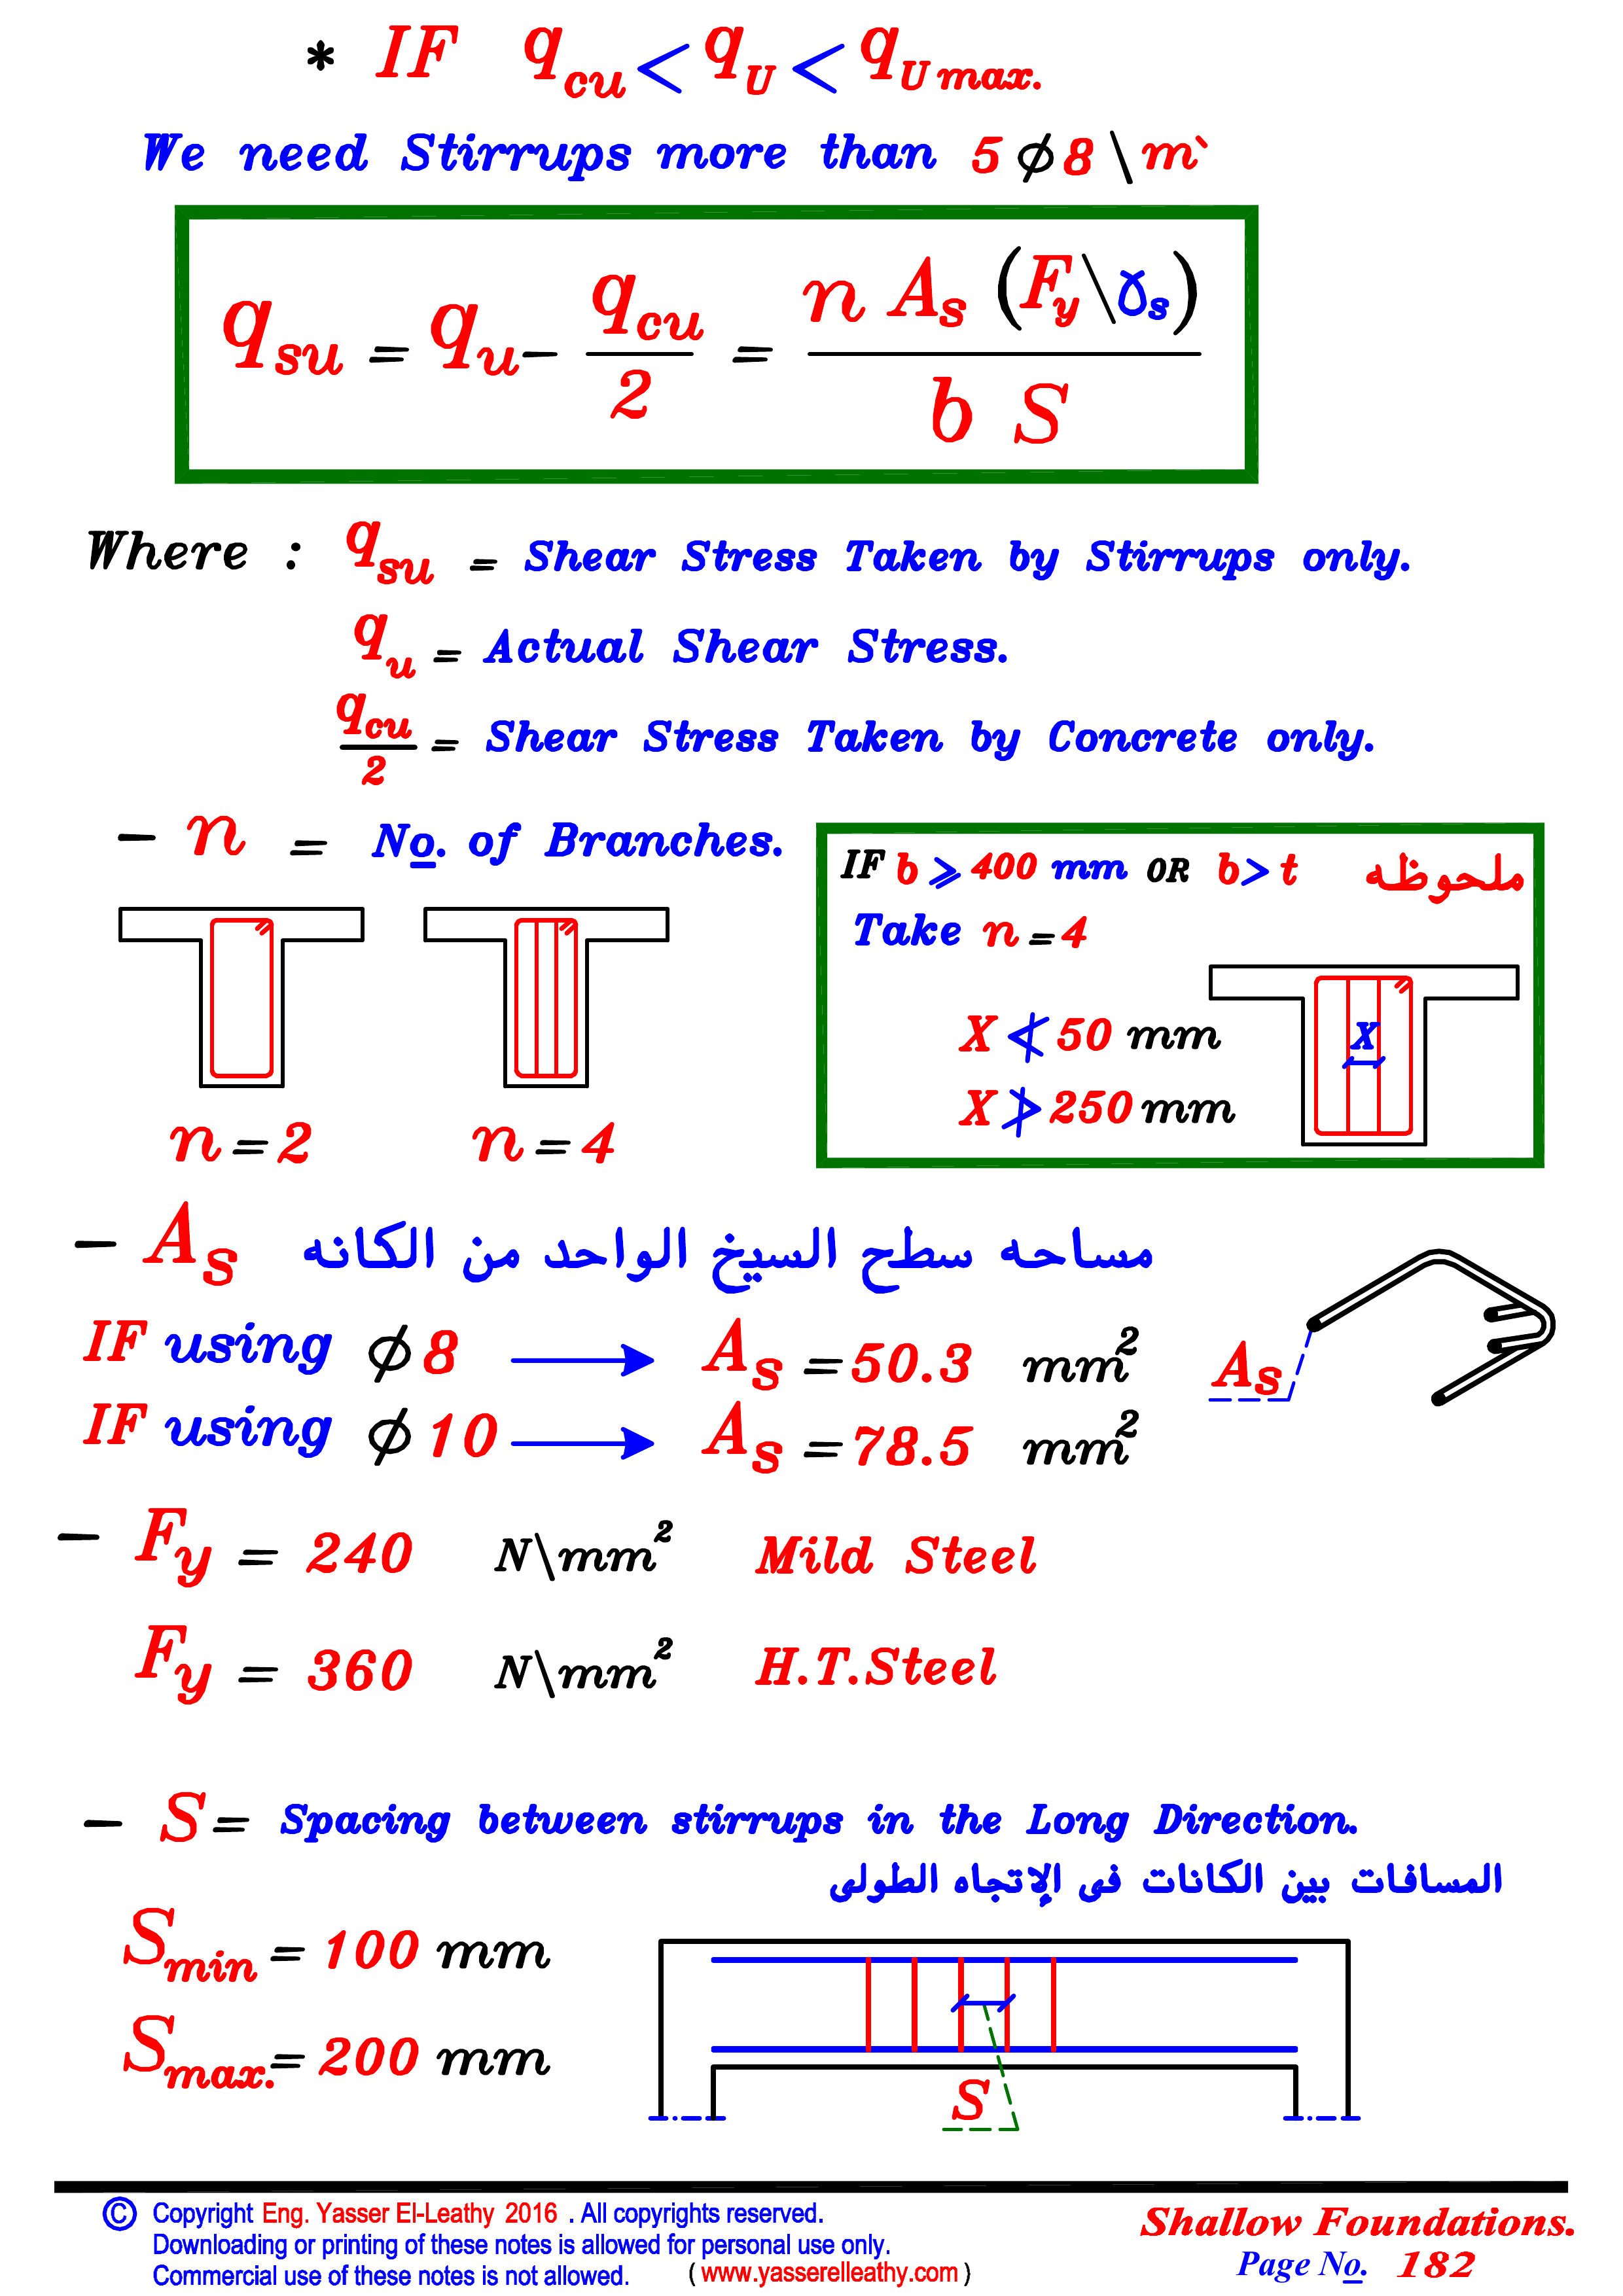 * IF q cu < q U < q U max.
We need Stirrups more than 5 ϕ 8 \ m`
q su = q u − q cu / 2 = n A s ( F y \ ɣ s ) / b S
Where : q su = Shear Stress Taken by Stirrups only.
q u = Actual Shear Stress.
q cu / 2 = Shear Stress Taken by Concrete only.
- n = No. of Branches.
n = 2
n = 4
IF b ⩾ 400 mm OR b > t ملحوظه
Take n = 4
X ≮ 50 mm
X ≯ 250 mm
X
- A s مساحه سطح السيخ الواحد من الكانه
IF using ϕ 8 → A s = 50.3 mm²
IF using ϕ 10 → A s = 78.5 mm²
A s
- F y = 240 N\mm² Mild Steel
F y = 360 N\mm² H.T.Steel
- S = Spacing between stirrups in the Long Direction.
المسافات بين الكانات فى الإتجاه الطولى
S min = 100 mm
S max. = 200 mm
S
© Copyright Eng. Yasser El-Leathy 2016 . All copyrights reserved.
Downloading or printing of these notes is allowed for personal use only.
Commercial use of these notes is not allowed. ( www.yasserelleathy.com )
Shallow Foundations.
Page No. 182